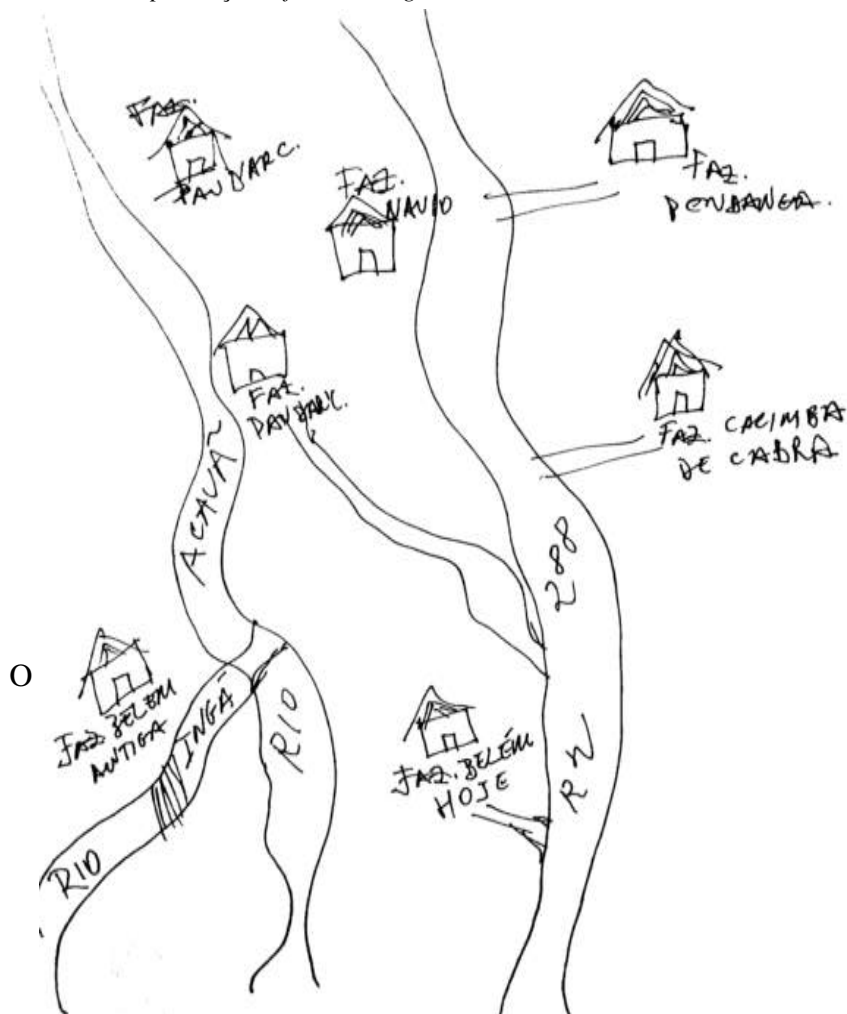 FAZ.
PAUDARC.
FAZ.
NAVIO
FAZ.
FAZ.
PAUDARC.
FAZ. CACIMBA
DE CABRA
ACAUÃ
288
RN
O
FAZ. BELEM
ANTIGA
RIO
INGÁ
RIO
FAZ. BELÉM
HOJE